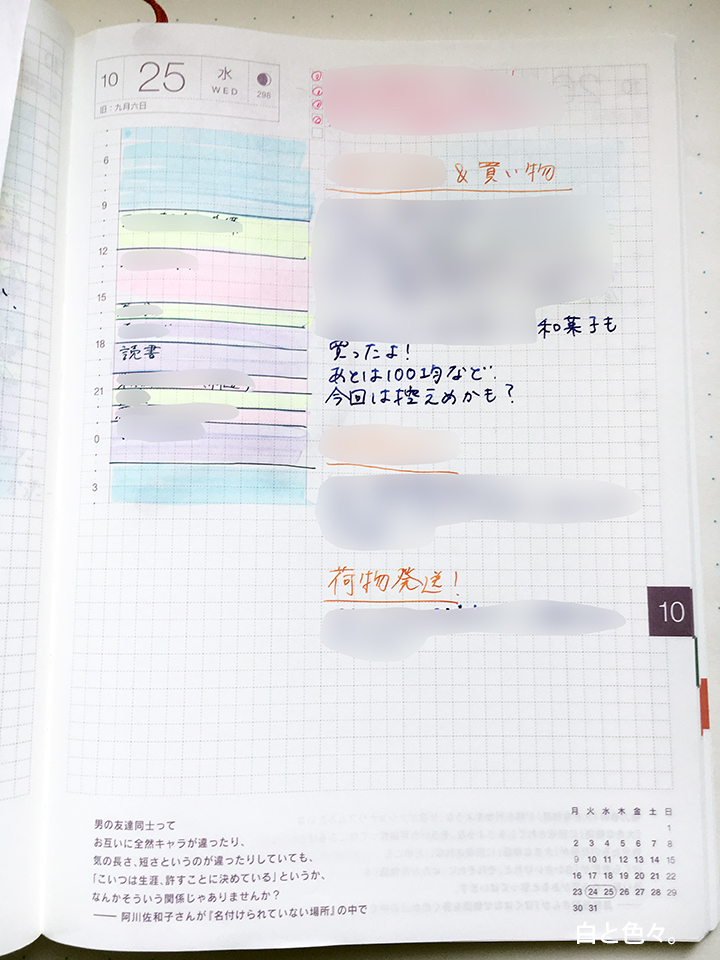 10 25 水 WED 298
旧：九月六日
6
9
12
15
18
読書
21
0
3
&買い物
和菓子も
買ったよ！
あとは100均など、
今回は控えめかも？
荷物発送！
10
男の友達同士って
お互いに全然キャラが違ったり、
気の長さ、短さというのが違ったりしていても、
「こいつは生涯、許すことに決めている」というか、
なんかそういう関係じゃありませんか？
―― 阿川佐和子さんが『名付けられていない場所』の中で
月 火 水 木 金 土 日
1
2 3 4 5 6 7 8
9 10 11 12 13 14 15
16 17 18 19 20 21 22
23 24 25 26 27 28 29
30 31
白と色々。